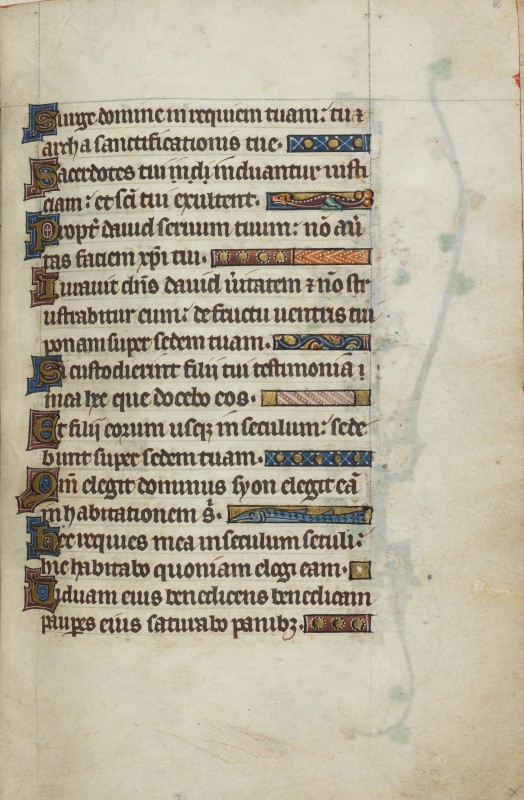 Surge domine in requiem tuam: tu ⁊
archa sanctificationis tue.
Sacerdotes tui indu induantur iusti
ciam: et sc̄i tui exultent.
Propt̄ dauid seruum tuum: nō au̅
tas faciem xp̄i tui.
Iurauit dn̄s dauid u̅itatem ⁊ nō fr
ustrabitur eum: de fructu uentris tui
ponam super sedem tuam.
Si custodierint filij tui testimonia
mea hec que docebo eos.
Et filij eorum usq; in seculum: sede
bunt super sedem tuam.
Qm̄ elegit dominus syon elegit eā
in habitationem s̄.
Hec requies mea in seculum seculi:
hic habitabo quoniam elegi eam.
Uiduam eius benedicens benedicam
paup̲es eius saturabo panibꝫ.